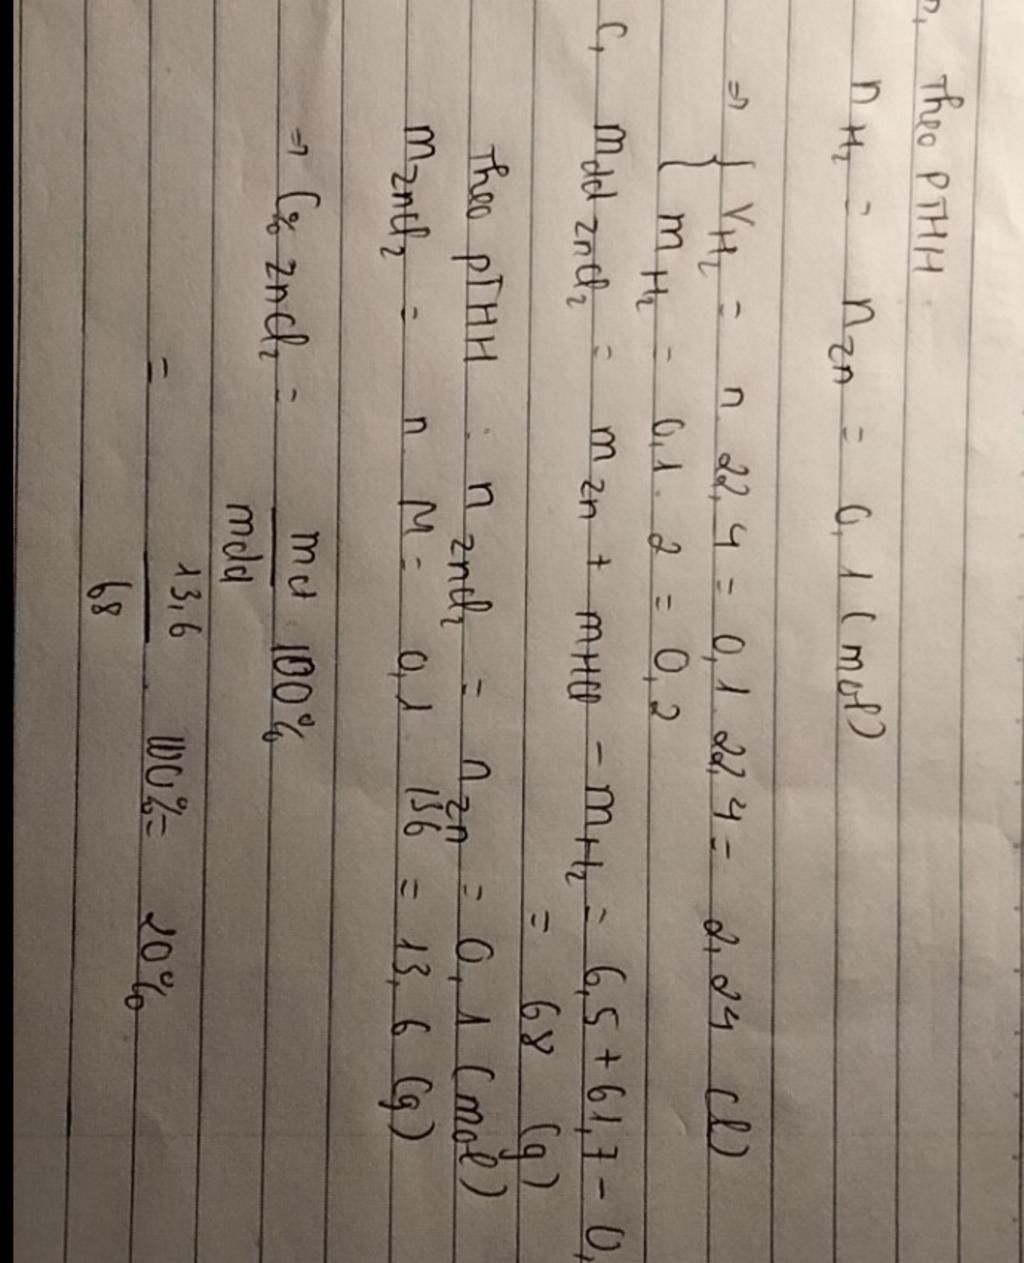 Theo PTHH:
n H₂ = n Zn = 0,1 (mol)
⇒ { V H₂ = n. 22,4 = 0,1. 22,4 = 2,24 (l)
m H₂ = 0,1. 2 = 0,2
c, mdd ZnCl₂ = m Zn + m HCl - m H₂ = 6,5 + 61,7 - 0,
= 68 (g)
Theo PTHH: n ZnCl₂ = n Zn = 0,1 (mol)
m ZnCl₂ = n. M = 0,1. 136 = 13,6 (g)
⇒ C% ZnCl₂ = mct/mdd . 100%
= 13,6/68 . 100% = 20%